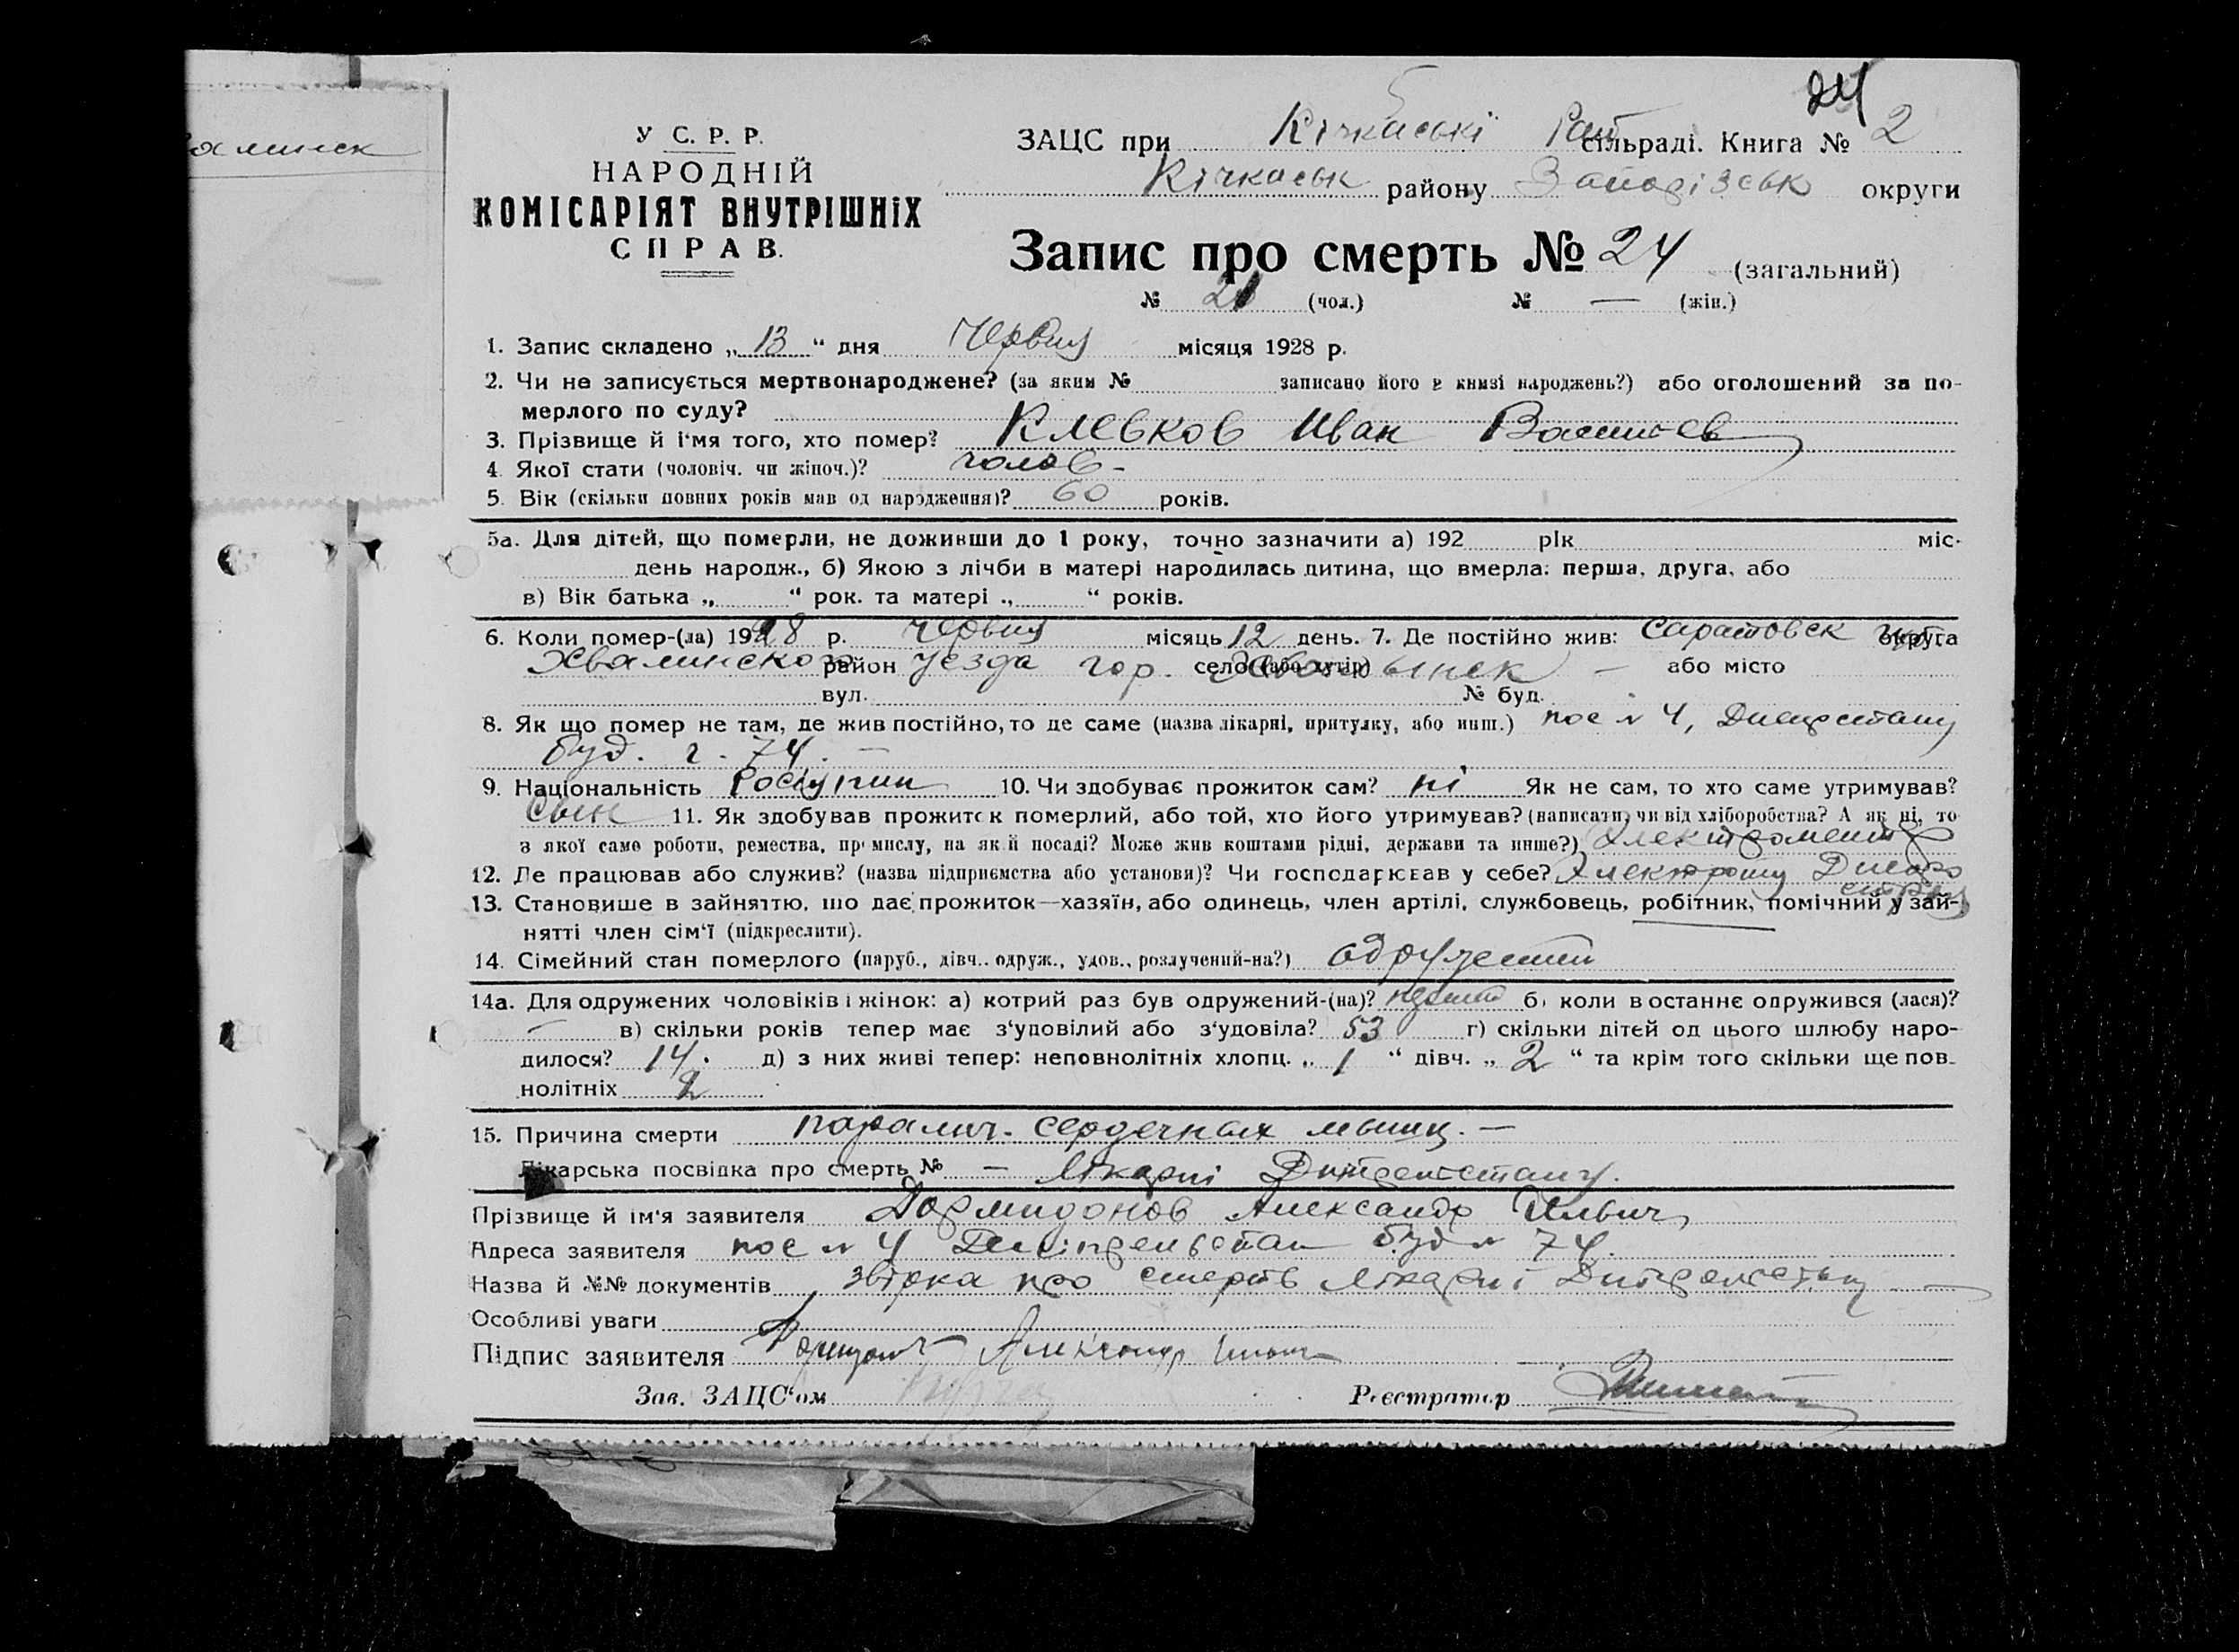 24
алинск
У С. Р. Р.
НАРОДНІЙ
КОМІСАРІЯТ ВНУТРІШНІХ
СПРАВ.
ЗАЦС при Кічкаські Рай сільраді. Книга № 2
Кічкаськ району Запорізськ округи
Запис про смерть № 24 (загальний)
№ 21 (чол.) № — (жін.)
1. Запис складено „ 13 “ дня Червня місяця 1928 р.
2. Чи не записується мертвонароджене? (за яким № записано його в книзі народжень?) або оголошений за по-
мерлого по суду?
3. Прізвище й і'мя того, хто помер? Клевков Иван Васильев
4. Якої стати (чоловіч. чи жіноч.)? чолов-
5. Вік (скільки повних років мав од народження)? 60 років.
5а. Для дітей, що померли, не доживши до 1 року, точно зазначити а) 192 рік міс.
день народж., б) Якою з лічби в матері народилась дитина, що вмерла: перша, друга, або
в) Вік батька „ “ рок. та матері „ “ років.
6. Коли помер-(ла) 1928 р. червня місяць 12 день. 7. Де постійно жив: Саратовск округа
Хвалинского район уезда гор. село (або хутір) — або місто
вул. № буд.
8. Як що помер не там, де жив постійно, то де саме (назва лікарні, притулку, або инш.) пос № 4,
буд. 74. —
9. Національність 10. Чи здобуває прожиток сам? ні Як не сам, то хто саме утримував?
Сын 11. Як здобував прожиток померлий, або той, хто його утримував? (написати, чи від хліборобства? А як ні, то
з якої саме роботи, ремества, промислу, на якій посаді? Може жив коштами рідні, держави та инше?)
12. Де працював або служив? (назва підприємства або установи)? Чи господарював у себе? Днепро
строй
13. Становище в зайняттю, що дає прожиток—хазяїн, або одинець, член артілі, службовець, робітник, помічний у зай-
нятті член сім'ї (підкреслити).
14. Сімейний стан померлого (паруб., дівч.. одруж., удов., розлучений-на?) одружений
14а. Для одружених чоловіків і жінок: а) котрий раз був одружений-(на)? б) коли востаннє одружився (лася)?
— в) скільки років тепер має з'удовілий або з'удовіла? 53 г) скільки дітей од цього шлюбу наро-
дилося? 14. д) з них живі тепер: неповнолітніх хлопц. „ 1 “ дівч. „ 2 “ та крім того скільки ще пов-
нолітніх 2
15. Причина смерти паралич. сердечных мышц. —
Лікарська посвідка про смерть № — Лікарні
Прізвище й ім'я заявителя Дормидонов Александр Ильич
Адреса заявителя пос № 4 буд № 74.
Назва й №№ документів звірка про смерть лікарні
Особливі уваги
Підпис заявителя Александр
Зав. ЗАЦС'ом Реєстратор